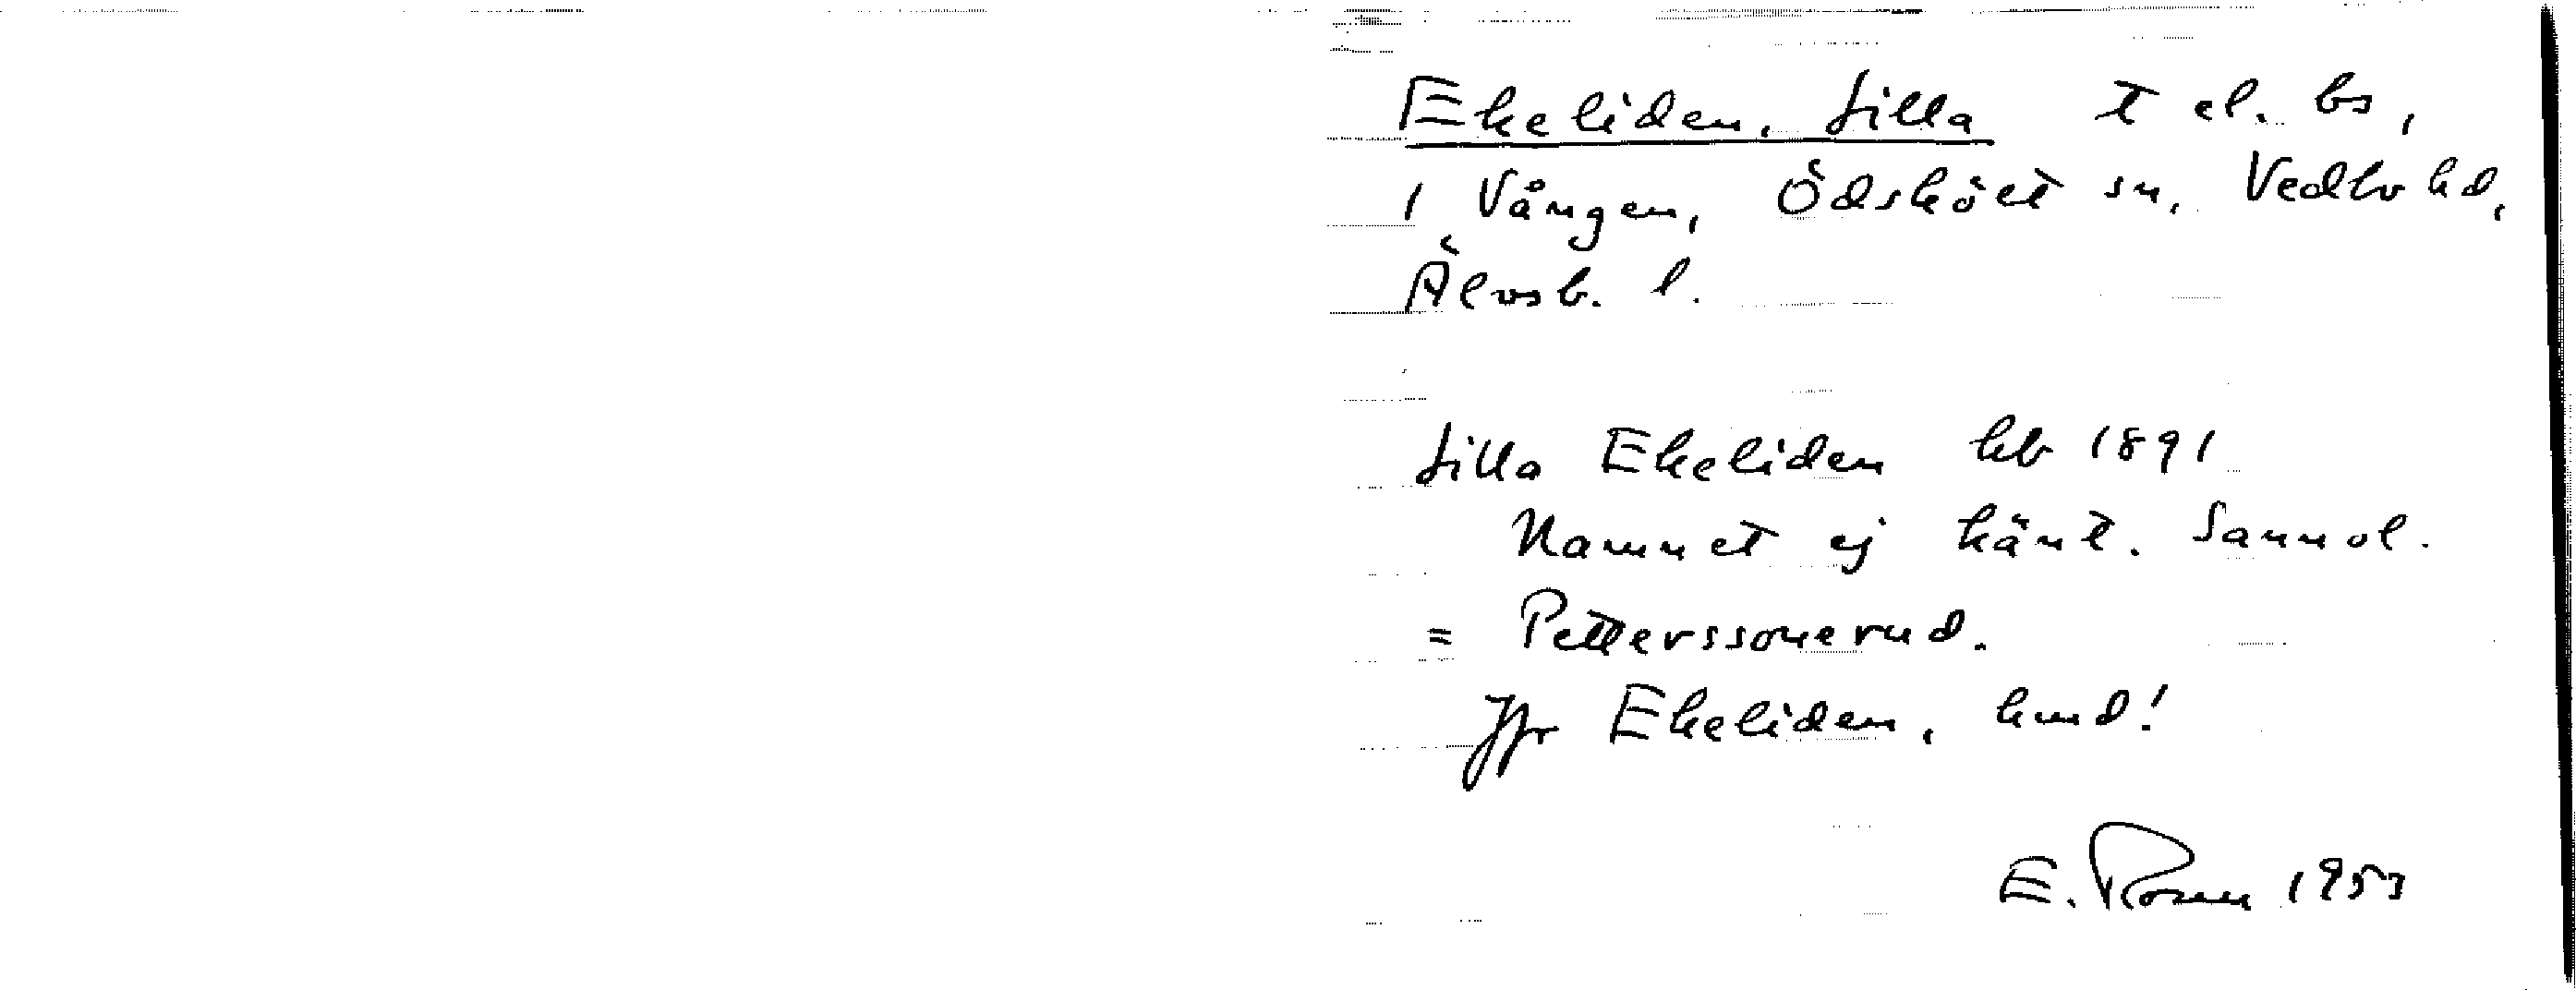 Ekeliden, Lilla t el. bs,
1 Vången, Ödskölt sn, Vedbo hd,
Älvsb. l.
Lilla Ekeliden kb 1891
Namnet ej känt. Sannol.
= Petterssonerud.
Jfr Ekeliden, hmd!
E. Rosen 1953